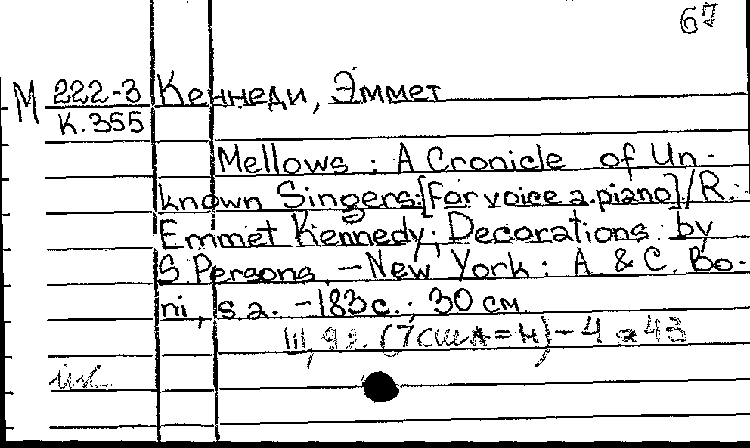 67
М 222-3 Кеннеди, Эммет
К.355
Mellows : A Cronicle of Un-
known Singers:[For voice a.piano]/R.
Emmet Kennedy; Decorations by
S.Persons. - New York : A. & C. Bo-
ni, s.a. - 183 с.; 30 см.